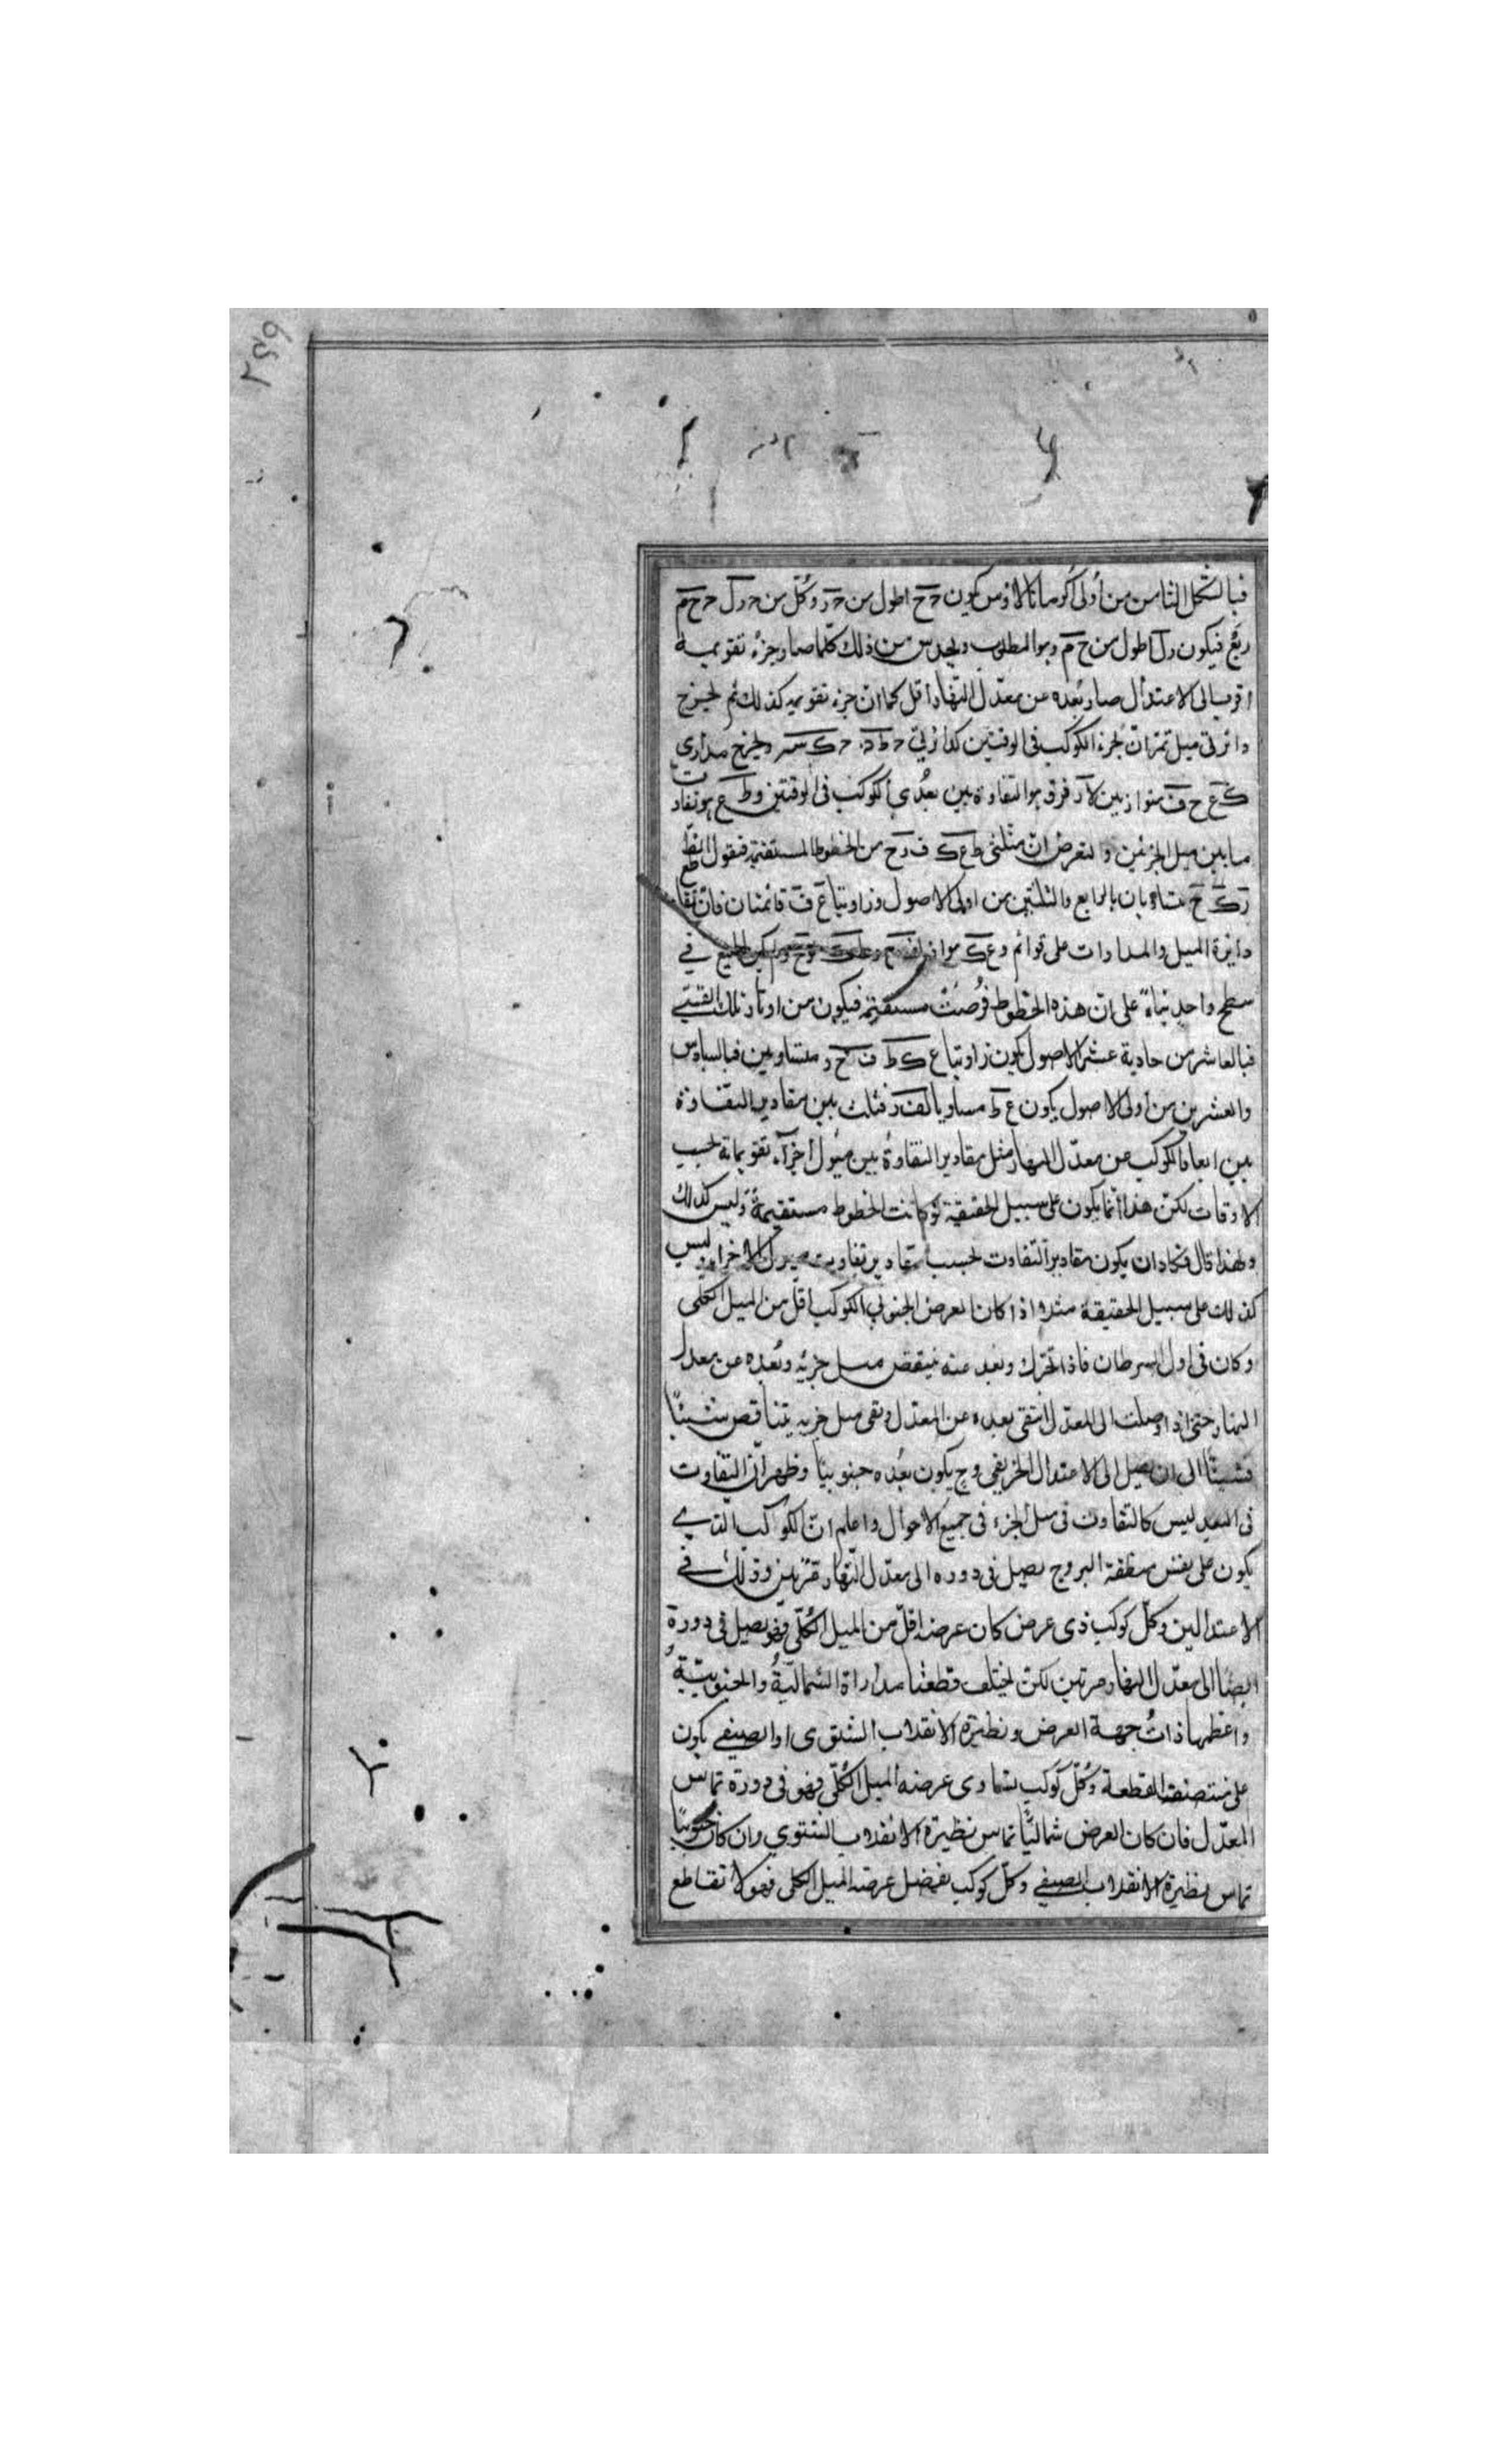 فبالشكل الثامن من أولى أكرمانالاؤس يكون حح اطول من حر وكل من حرل ححم
ربع فيكون رل اطول من ح م وهو المطلوب ويحدس من ذلك كلما صار جزء تقويمه
اقرب الى الاعتدال صار بعده عن معدل النهار أقل كما ان جزء تقويمه كذلك ثم لنخرج
دائرتى ميل تمران بجزء الكوكب فى الوقتين ولنخرج مدارى
ك ع ح ف متوازيين فرق هو التفاوت بين بعدى الكوكب فى الوقتين وط ع هو تفاوت
ما بين ميل الجزئين ولنفرض ان مثلثى ط ع ك ف ر ح من الخطوط المستقيمة فنقول
متساويان بالرابع والثلثين من اولى الاصول وزاويتا ع ف قائمتان فان تقاطع
دائرة الميل والمدارات على قوائم و ع ك مواز فى
سطح واحد بناء على ان هذه الخطوط فرضت مستقيمة فيكون من اوتار تلك القسى
فبالعاشر من حادية عشر الاصول يكون زاويتا ع ك ط ف ح ر متساويين فبالسادس
والعشرين من أولى الاصول يكون ع ط مساويا لف ر فثبت بين مقادير التفاوت
بين ابعاد الكوكب عن معدل النهار مثل مقادير التفاوت بين ميول أجزآء تقويماته بحسب
الاوقات لكن هذا انما يكون على سبيل الحقيقة لو كانت الخطوط مستقيمة وليس كذلك
ولهذا قال فكاد ان يكون مقادير التفاوت بحسب مقادير تفاوت ميول الاجزاء وليس
كذلك على سبيل الحقيقة مثلا اذا كان العرض الجنوبى للكوكب اقل من الميل الكلى
وكان فى اول السرطان فاذا تحرك وبعد عنه ينقص ميل جزئه وبعده عن معدل
النهار حتى اذا وصلت الى المعدل انتفى بعده عن المعدل وبقى ميل جزءه يتناقص شيئا
فشيئا الى ان يصل الى الاعتدال الخريفى وح يكون بعده جنوبيا وظهر ان التفاوت
فى البعد ليس كالتفاوت فى ميل الجزء فى جميع الاحوال واعلم ان الكوكب الذى
يكون على نفس منطقة البروج يصل فى دوره الى معدل النهار مرتين وذلك فى
الاعتدالين وكل كوكب ذى عرض كان عرضه اقل من الميل الكلى فهو يصل فى دورة
ايضا الى معدل النهار مرتين لكن يختلف قطعتا مداراة الشمالية والجنوبية
واعظمها ذات جهة العرض ونظيرة الانقلاب الشتوى او الصيفى يكون
على منتصف القطعة وكل كوكب يساوى عرضه الميل الكلى فهو فى دورة تماس
المعدل فان كان العرض شماليا تماس بنظيرة الانقلاب الشتوى وان كان جنوبيا
تماس بنظيرة الانقلاب الصيفى وكل كوكب يفضل عرضه الميل الكلى فهو لا تقاطع